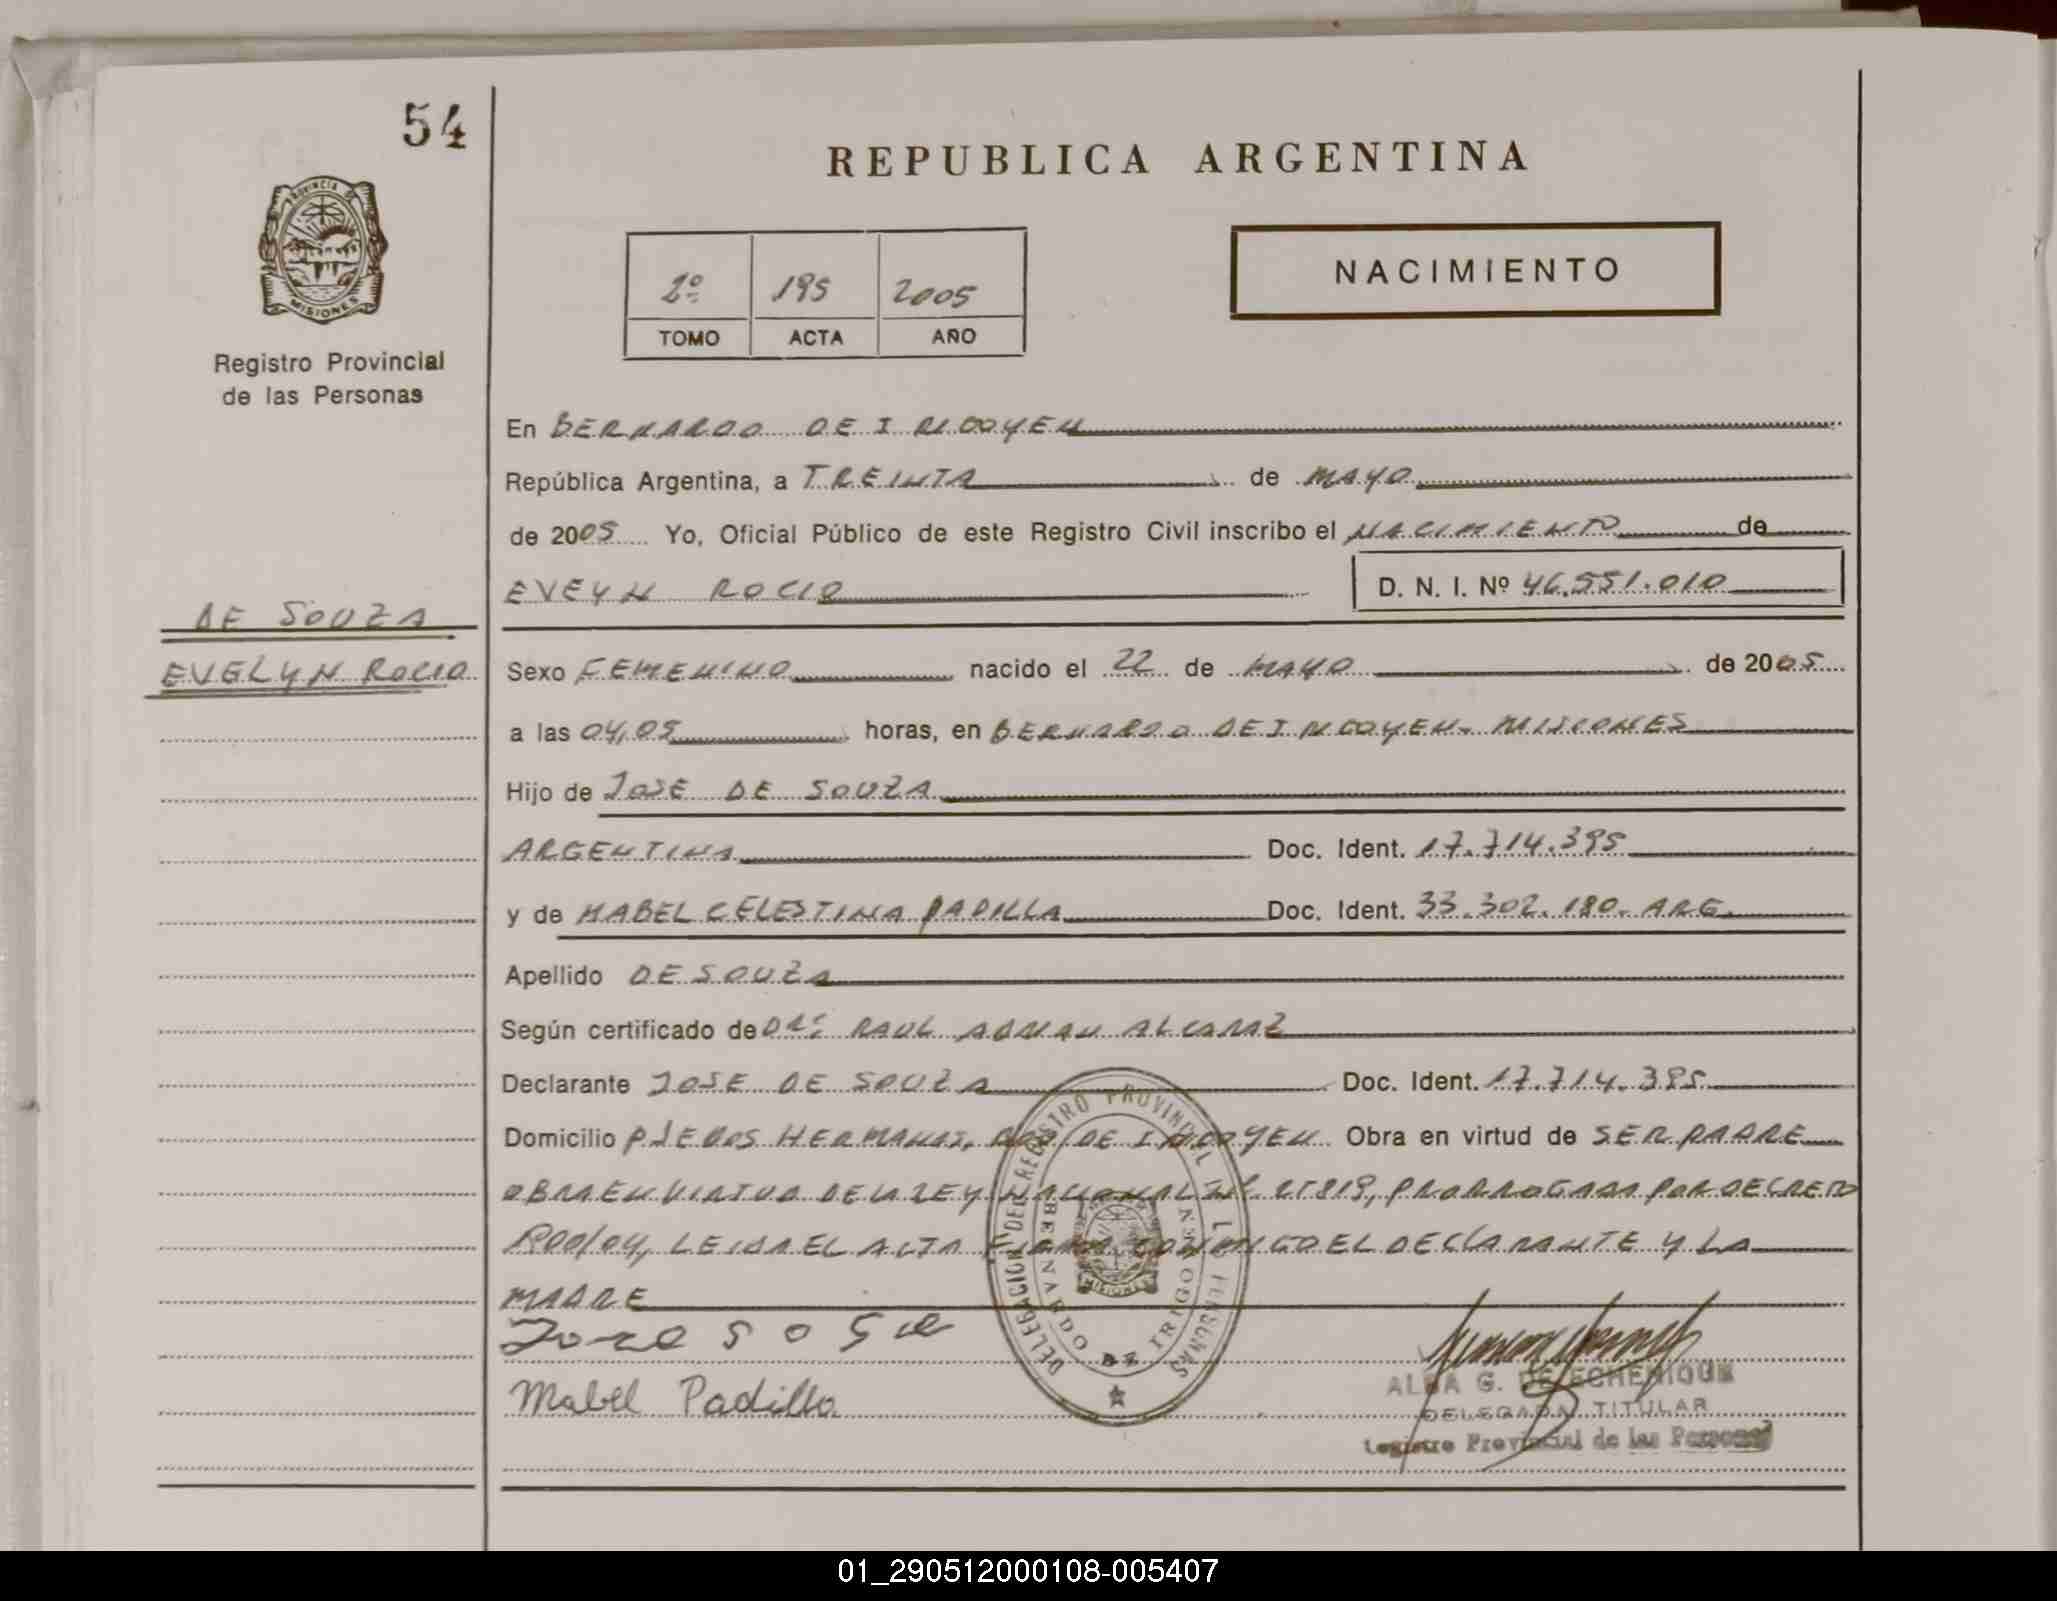 54
PROVINCIA DE
MISIONES
Registro Provincial
de las Personas
REPUBLICA ARGENTINA
2º 195 2005
TOMO ACTA AÑO
NACIMIENTO
En BERNARDO DE IRIGOYEN
República Argentina, a TREINTA de MAYO
de 2005 Yo, Oficial Público de este Registro Civil inscribo el NACIMIENTO de
EVEYN ROCIO D. N. I. Nº 46.551.010
DE SOUZA
EVELYN ROCIO
Sexo FEMENINO nacido el 22 de MAYO de 2005
a las 04,05 horas, en BERNARDO DE IRIGOYEN- MISIONES
Hijo de JOSE DE SOUZA
ARGENTINA Doc. Ident. 17.714.395
y de MABEL CELESTINA PADILLA Doc. Ident. 33.302.180- ARG.
Apellido DE SOUZA
Según certificado de DR: RAUL ADRIAN ALCARAZ
Declarante JOSE DE SOUZA Doc. Ident. 17.714.395
Domicilio HERMANAS, DE IRIGOYEN Obra en virtud de SER PADRE
OBRA EN VIRTUD DE LA LEY NACIONAL Nº 25819, PRORROGADA POR DECRETO
LEIDA EL ACTA FIRMA CONMIGO EL DECLARANTE Y LA
MADRE
DELEGACION DEL REGISTRO PROVINCIAL DE LAS PERSONAS
BERNARDO DE IRIGOYEN
MISIONES
Mabel Padilla
ALBA G. DE ECHENIQUE
DELEGADA TITULAR
Registro Provincial de las Personas
01_290512000108-005407